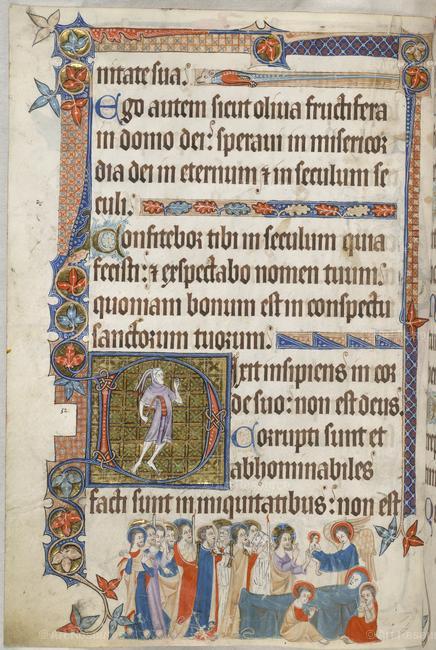 nitate sua.
Ego autem sicut oliua fructifera
in domo dei: speraui in misericor
dia dei in eternum ⁊ in seculum se
culi.
Confitebor tibi in seculum quia
fecisti: ⁊ exspectabo nomen tuum.
quoniam bonum est in conspectu
sanctorum tuorum.
Dixit insipiens in cor
de suo: non est deus.
Corrupti sunt et
abhominabiles
facti sunt in iniquitatibus: non est
52.